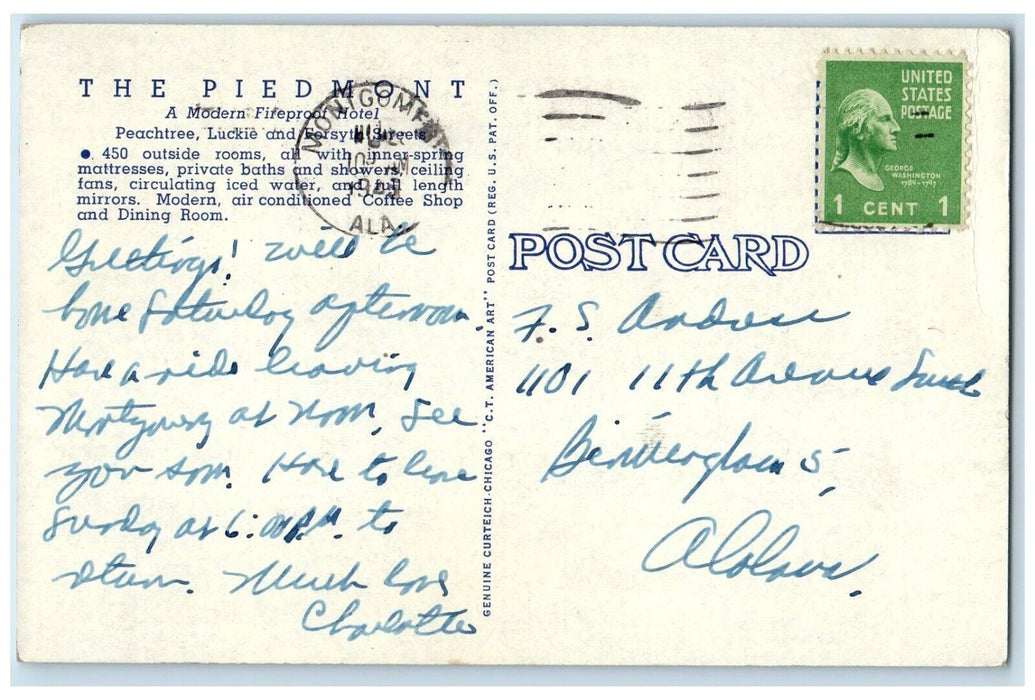 THE PIEDMONT
A Modern Fireproof Hotel
Peachtree, Luckie and Forsyth Streets
● 450 outside rooms, all with inner-spring
mattresses, private baths and showers, ceiling
fans, circulating iced water, and full length
mirrors. Modern, air conditioned Coffee Shop
and Dining Room.
Greetings! Will be
home Saturday afternoon.
Have a ride leaving
Montgomery at Noon. See
you soon. Have to leave
Sunday at 6:00 P.M. to
return. Much love
Charlotte
MONTGOMERY
AM
ALA.
GENUINE CURTEICH-CHICAGO "C.T. AMERICAN ART" POST CARD (REG. U.S. PAT. OFF.)
UNITED
STATES
POSTAGE
GEORGE
WASHINGTON
1789-1797
1 CENT 1
POST CARD
F. S.
1101 11th Avenue South
Birmingham 5,
Alabama.